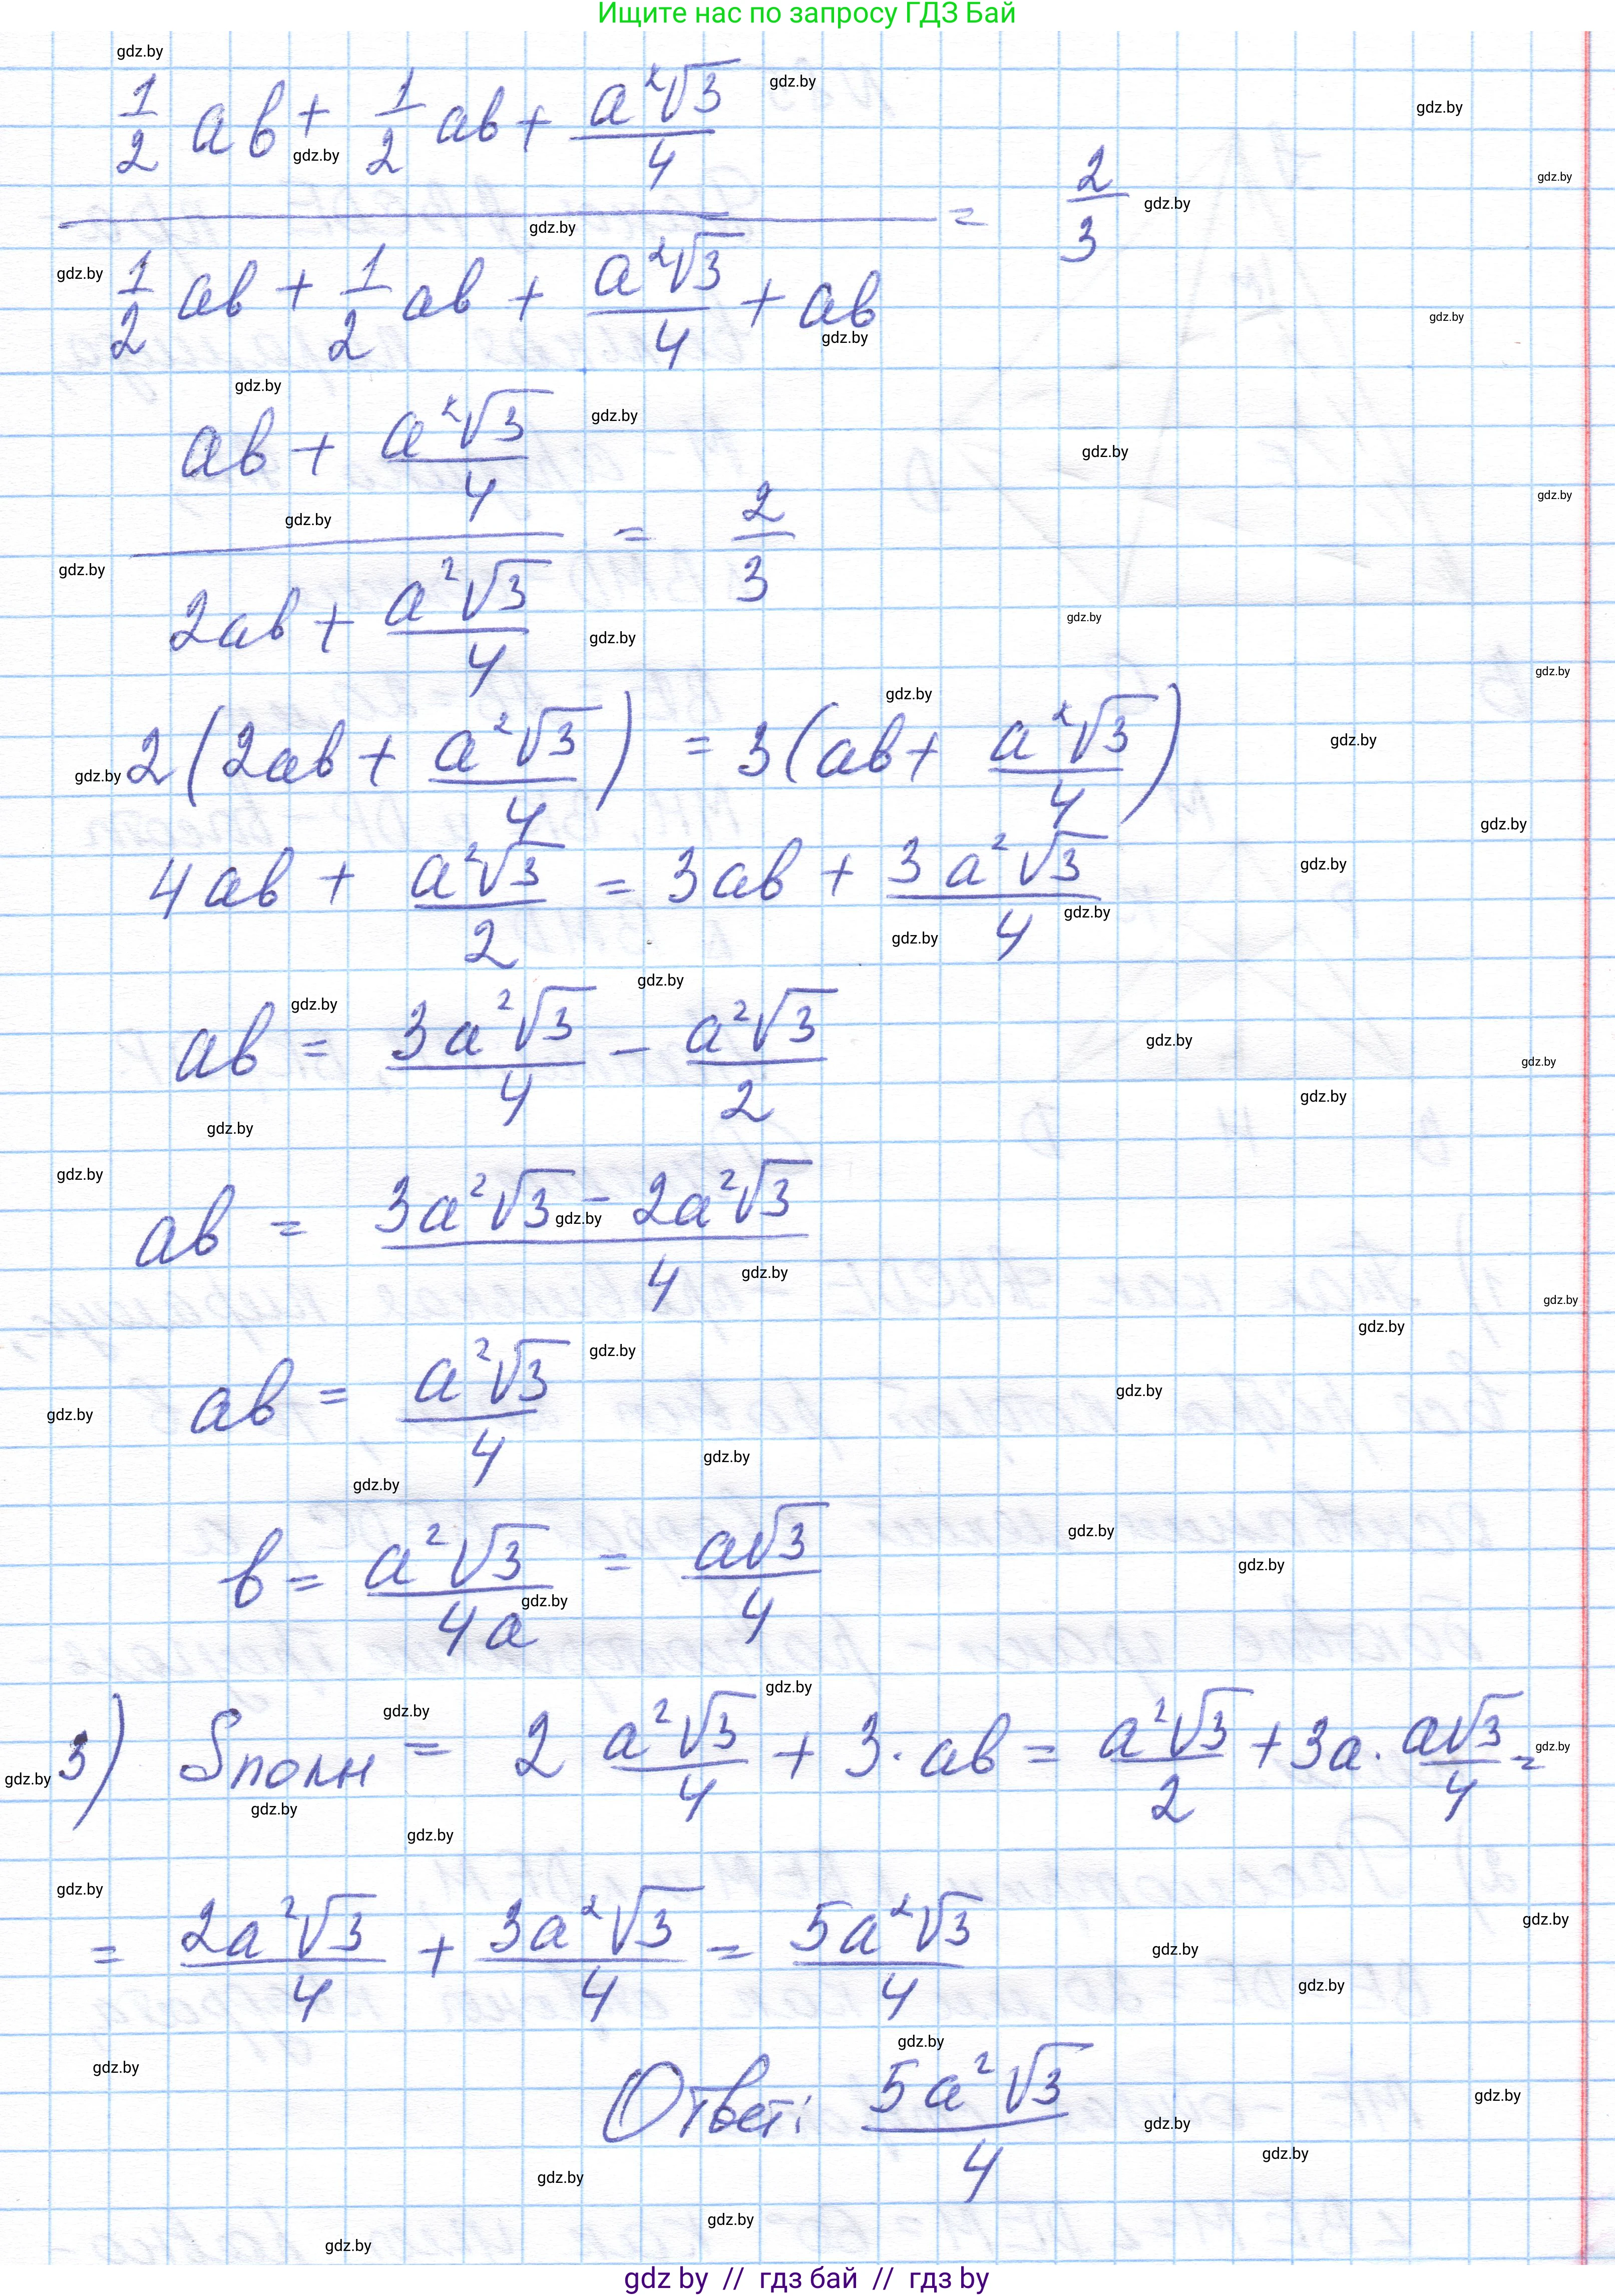 Ищите нас по запросу ГДЗ Бай
(1/2 ab + 1/2 ab + a²√3/4) / (1/2 ab + 1/2 ab + a²√3/4 + ab) = 2/3
(ab + a²√3/4) / (2ab + a²√3/4) = 2/3
2(2ab + a²√3/4) = 3(ab + a²√3/4)
4ab + a²√3/2 = 3ab + 3a²√3/4
ab = 3a²√3/4 - a²√3/2
ab = (3a²√3 - 2a²√3)/4
ab = a²√3/4
b = a²√3/4a = a√3/4
3) Sполн = 2 a²√3/4 + 3·ab = a²√3/2 + 3a·a√3/4 =
= 2a²√3/4 + 3a²√3/4 = 5a²√3/4
Ответ: 5a²√3/4
gdz by // гдз бай // гдз by